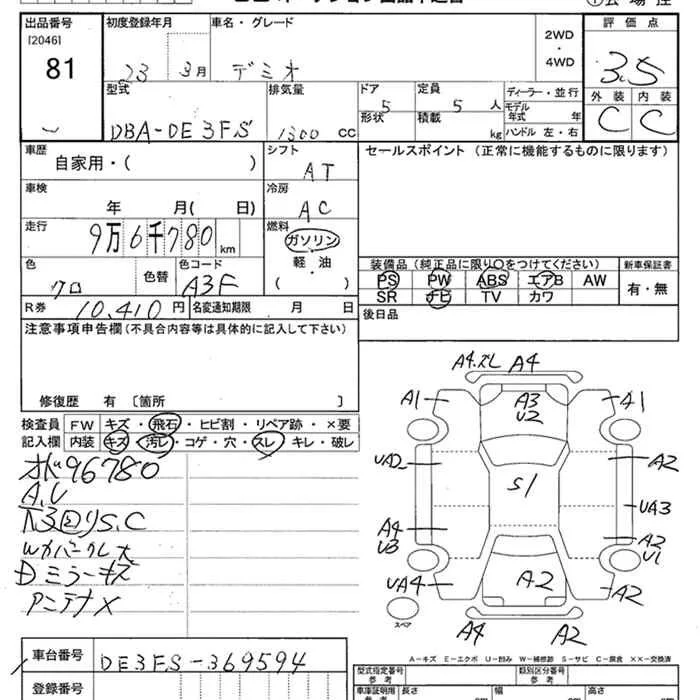 出品番号 初度登録年月 車名・グレード 2WD・4WD 評価点
[2046]
81 23 3月 デミオ 3.5
型式 排気量 ドア 定員 ディーラー・並行 外装 内装
DBA-DE3FS 1300 CC 5 5人 モデル年式 年 C C
形状 積載 kg ハンドル 左・右
車歴 自家用・( ) シフト AT セールスポイント (正常に機能するものに限ります)
車検 年 月( 日) 冷房 AC
走行 9万6千780km 燃料 ガソリン 軽・油 ( )
色 クロ 色替 色コード A3F
装備品 (純正品に限り○をつけてください) 新車保証書
PS PW ABS エアB AW 有・無
SR ナビ TV カワ
R券 10,410円 名変通知期限 月 日 後日品
注意事項申告欄(不具合内容等は具体的に記入して下さい)
修復歴 有 〔箇所 〕
検査員 FW キズ・飛石・ヒビ割・リペア跡・×要
記入欄 内装 キズ・汚レ・コゲ・穴・スレ・キレ・破レ
96780
A.V
S.C
Dミラーキズ
アンテナX
A4.スレ A4
A1 A3 U2 A1
UA2 S1 A2
UA3
A4 U3 A2 U1
UA4 A2 A2
スペア
A4 A2
A-キズ E-エクボ U-凹み W-補修跡 S-サビ C-腐食 ××-交換済
車台番号 DE3FS-369594
登録番号
型式指定番号 参考 類別区分番号 参考
車庫証明用 参考 長さ cm 幅 cm 高さ cm